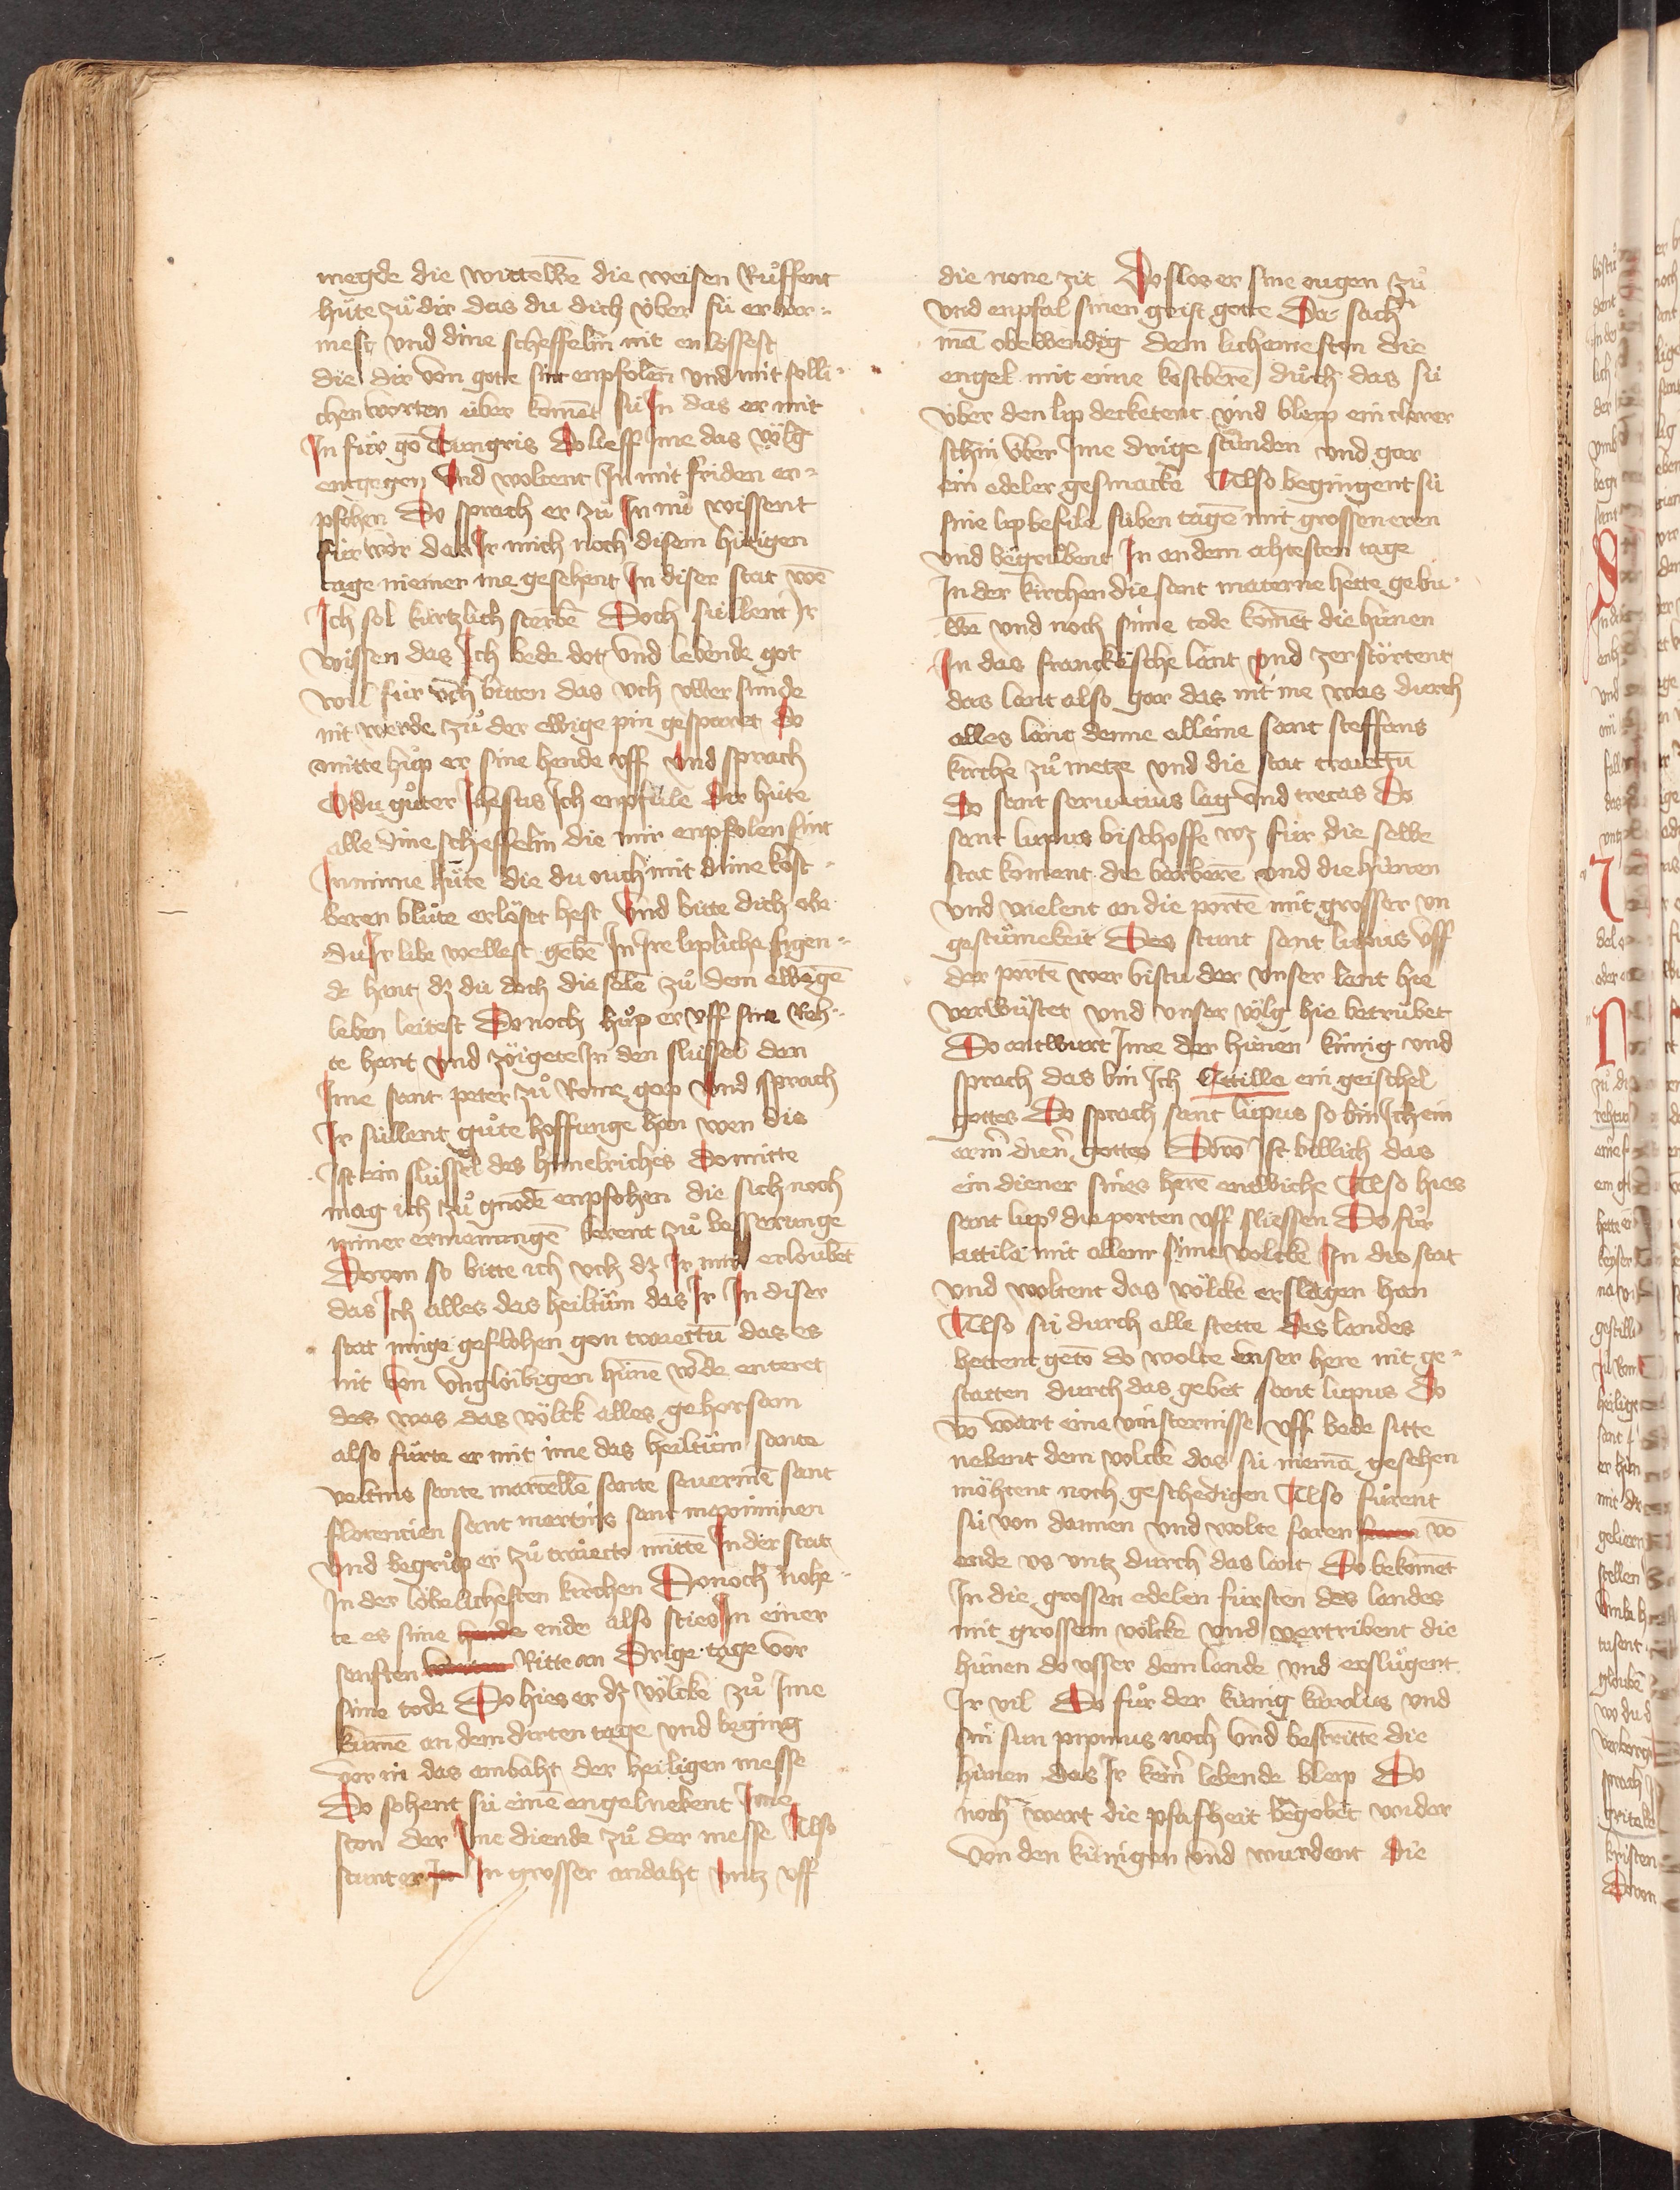 megde die wittewē die weisen Ruͦffent
hüte zuͦ dir das du dich über sü erbar-
mest vnd dine scheffelin nit en lossest
die dir von gotte sint enpfolen vnd mit solli-
chen worten über komēt sü In das er mit
In für gō Tungris do lieff Ime das völg
entgegen vnd woltent In mit friden en-
pfohen Do sprach er zuͦ In nuͦ wissent
für wor das Ir mich noch disem hütigen
tage niemer me gesehent In diser stat wē
Ich sol kürtzlich sterbē Doch süllent Ir
wissen das Ich bede dot vnd lebende got
wil für üch bitten das uch uwer sünde
nit werde zuͦ der ewige pin gespart do
mitte huͦp er sine hende vff vnd sprach
O du guͦter Ihesus Ich enpfule dir hüte
alle dine scheffelin die mir enpfolen sint
In mine huͤte die du ouch mit dime kost-
beren bluͦte erlöset hest vnd bitte dich obe
du Ir libe wellest gebē In Ire lipliche figen-
de hant dz du doch die selē zuͦ dem ewigē
leben leitest Donoch huͦp er vff sine Reh-
te hant vnd zöigete In den slüssel den
Ime sant peter zuͦ Rome gap vnd sprach
Ir süllent guͦte hoffunge han wen dis
Ist ein slüssel des himelriches Domitte
mag ich zuͦ gnodē enpfohen die sich noch
miner ermanungē kerent zuͦ besserunge
Dovon so bitte ich uch dz Ir mir erloubēt
das Ich alles das heiltüm das Ir In diser
stat müge geflohen gon traiectū das es
nit von vngloͤibigen hünē w̄de enteret
des was das völck alles gehorsam
also fürte er mit ime das heiltüm sante
veltins sante marcellē sante seuerinē sant
florencien sant martins sant maximinen
vnd begruͦp er zuͦ traiecto mittē In der stat
In der löbelichesten kirchen Donoch nohe-
te es sime ende also sties In einer
senften Ritte an drige tage vor
sime tode Do hies er dz völcke zuͦ Ime
kūmē an dem dirten tage vnd beging
vor in das ambaht der heiligen messe
Do sohent sü einē engel nebent Ime
ston der Ime diende zuͦ der messe Also
stunt er In grosser andaht vntz vff
die none zit Do slos er sine ougen zuͦ
vnd enpfal sinen geist gotte Da sach
mā obewendig dem lichame ston die
engel mit eime kostberē duͦch das sü
über den lip decketent vnd bleip ein clarer
schin über Ime drige stunden vnd gar
ein edeler gesmacke Also begingent sü
sine lip befilde süben tage mit grossen eren
vnd begrubent In an dem ahtesten tage
In der kirchen die sant materne hette gebu-
wē vnd noch sime tode komēt die hünen
In das franckische lant vnd zerstörtent
das lant also gar das nit me was durch
alles lant denne alleine sant steffans
kirche zuͦ metze vnd die stat traiectū
do sant seruatius lag vnd trecas Do
sant lupus bischoffe wz für die selbe
stat koment die barberē vnd die hünen
vnd vielent an die portē mit grosser vn
gestuͤmekeit Des stunt sant lupus vff
der portē wer bistu der vnser lant hie
verwüstet vnd vnser völg hie betrübet
Do antwurt Ime der hünen künig vnd
sprach das bin Ich Attilla ein geischel
gottes Do sprach sant lupus so bin Ich ein
arm̄ dien̄ gottes Dovō Ist billich das
ein diener sines herē entwiche Also hies
sant lup9 die porten vff sliessen Do fuͦr
attila mit allem sime volcke In die stat
vnd woltent das völcke erslagen han
Also sü durch alle stette des landes
hettent getō do wolte vnser here nit ge-
statten durch das gebet sant lupus Do
vō wart eine vinsternisse vff bede sitte
nebent dem volcke das sü niemā gesehen
möhtent noch geschedigen Also fuͦrent
sü von dannen vnd wolte faren vō
ende vs vntz durch das lant Do bekomēt
In die grossen edelen fürsten des landes
mit grossem völcke vnd vertribent die
hünen do vsser dem lande vnd erslugent
Ir vil Do fuͦr der künig karolus vnd
sin sun pipinus noch vnd bestrittē die
hünen das Ir kein̄ lebende bleip Do
noch wart die pfafheit begobet vnder
von den künigen vnd wurdent die